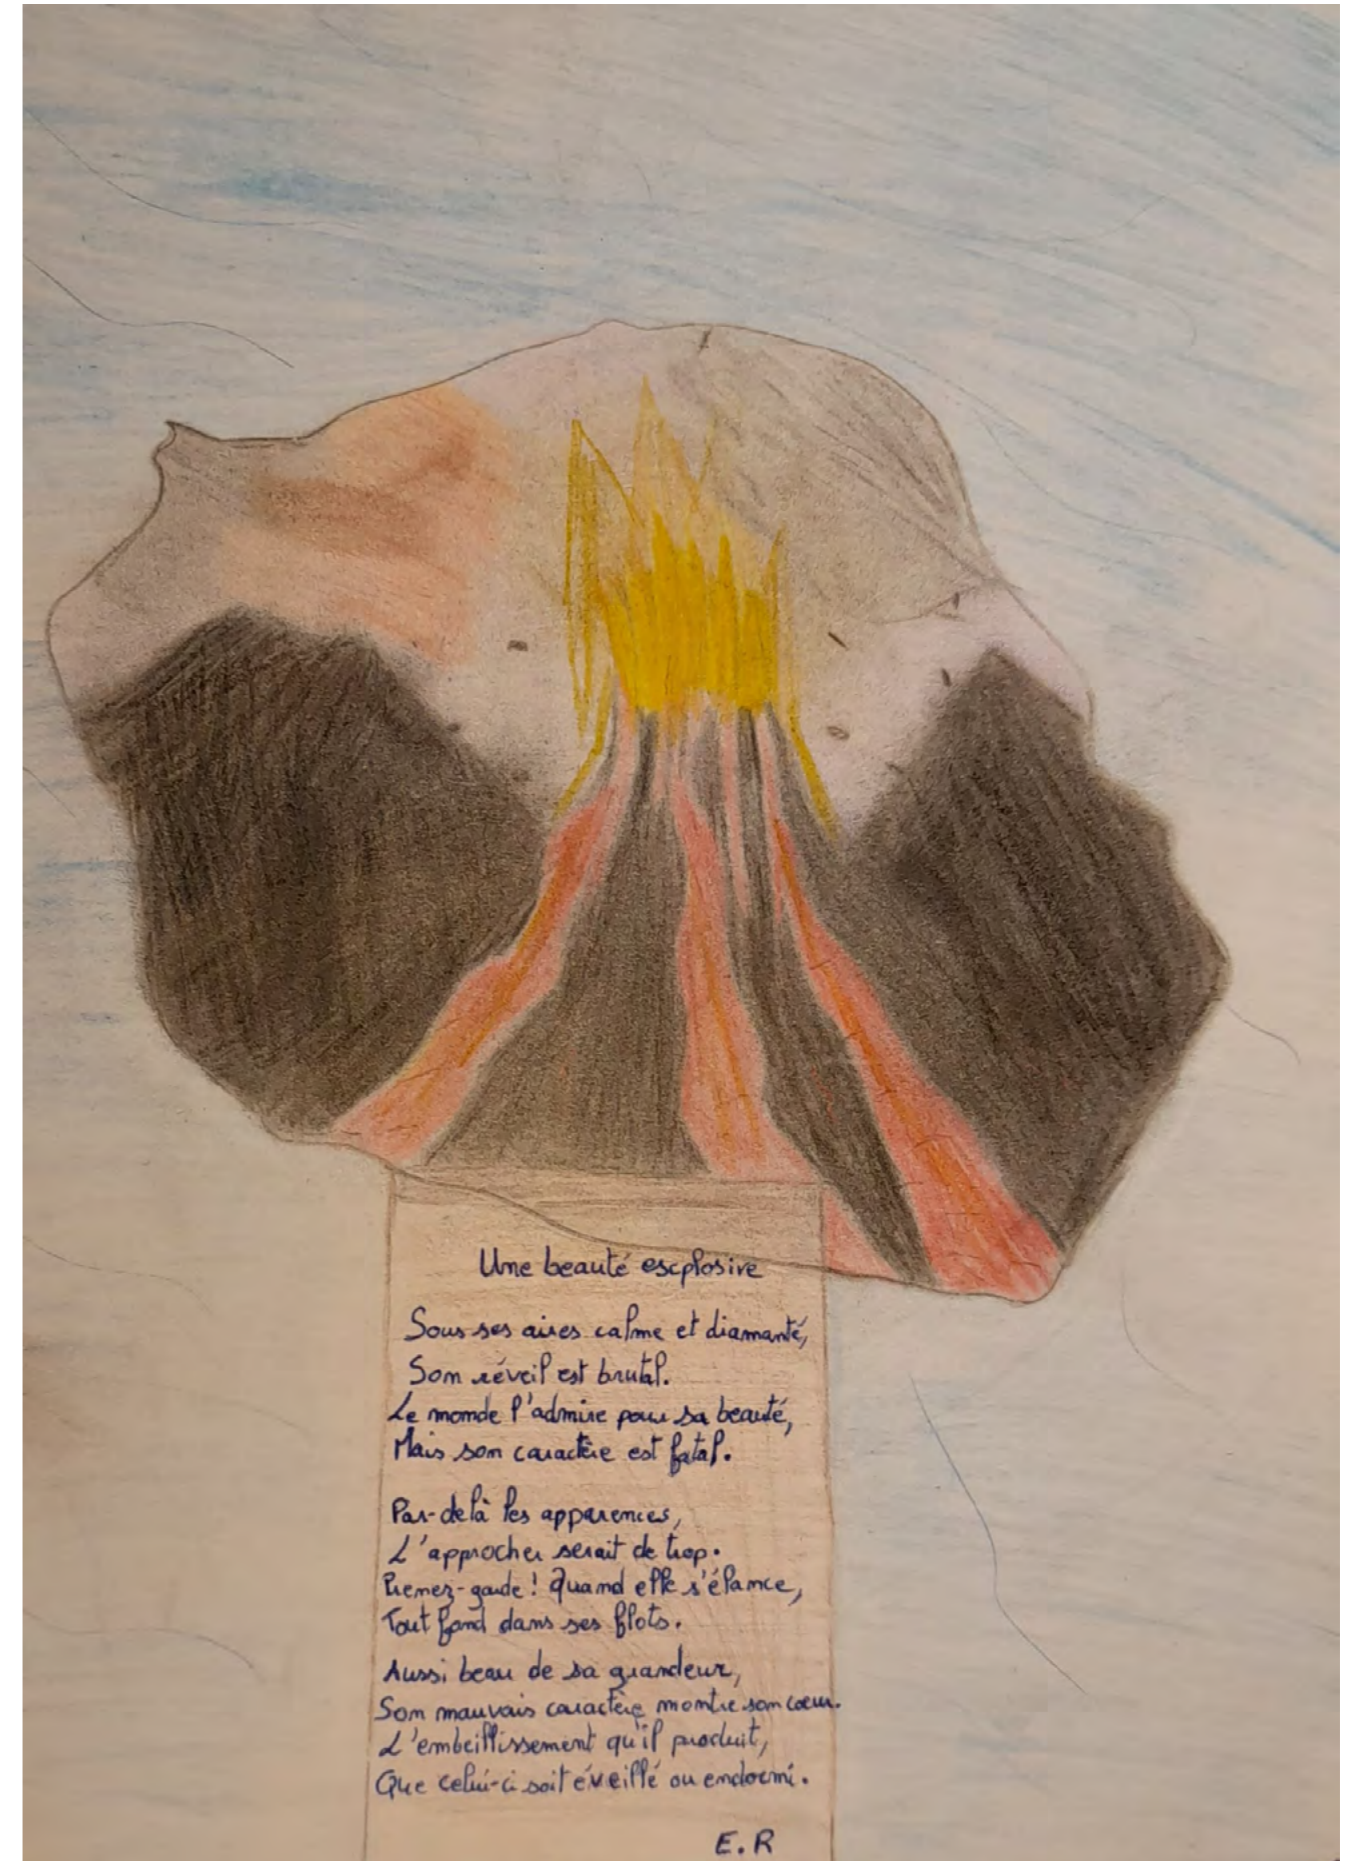 Une beauté explosive
Sous ses aires calme et diamanté,
Son réveil est brutal.
Le monde l'admire pour sa beauté,
Mais son caractère est fatal.
Par-delà les apparences,
L'approcher serait de trop.
Prenez-garde ! Quand elle s'élance,
Tout fond dans ses flots.
Aussi beau de sa grandeur,
Son mauvais caractère montre son cœur.
L'embellissement qu'il produit,
Que celui-ci soit éveillé ou endormi.
E.R